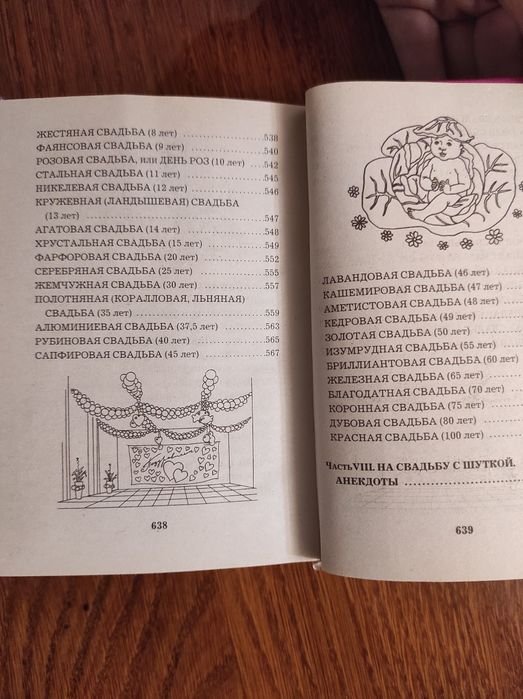 ЖЕСТЯНАЯ СВАДЬБА (8 лет) ........................538
ФАЯНСОВАЯ СВАДЬБА (9 лет) ........................540
РОЗОВАЯ СВАДЬБА, или ДЕНЬ РОЗ (10 лет) ....542
СТАЛЬНАЯ СВАДЬБА (11 лет) ........................545
НИКЕЛЕВАЯ СВАДЬБА (12 лет) ........................546
КРУЖЕВНАЯ (ЛАНДЫШЕВАЯ) СВАДЬБА
(13 лет) ........................547
АГАТОВАЯ СВАДЬБА (14 лет) ........................548
ХРУСТАЛЬНАЯ СВАДЬБА (15 лет) ........................549
ФАРФОРОВАЯ СВАДЬБА (20 лет) ........................552
СЕРЕБРЯНАЯ СВАДЬБА (25 лет) ........................555
ЖЕМЧУЖНАЯ СВАДЬБА (30 лет) ........................557
ПОЛОТНЯНАЯ (КОРАЛЛОВАЯ, ЛЬНЯНАЯ)
СВАДЬБА (35 лет) ........................559
АЛЮМИНИЕВАЯ СВАДЬБА (37,5 лет) ................563
РУБИНОВАЯ СВАДЬБА (40 лет) ........................565
САПФИРОВАЯ СВАДЬБА (45 лет) ........................567
638
ЛАВАНДОВАЯ СВАДЬБА (46 лет) ........
КАШЕМИРОВАЯ СВАДЬБА (47 лет) ....
АМЕТИСТОВАЯ СВАДЬБА (48 лет) ......
КЕДРОВАЯ СВАДЬБА (49 лет) ........
ЗОЛОТАЯ СВАДЬБА (50 лет) ........
ИЗУМРУДНАЯ СВАДЬБА (55 лет) ......
БРИЛЛИАНТОВАЯ СВАДЬБА (60 лет)
ЖЕЛЕЗНАЯ СВАДЬБА (65 лет) ........
БЛАГОДАТНАЯ СВАДЬБА (70 лет) ....
КОРОННАЯ СВАДЬБА (75 лет) ........
ДУБОВАЯ СВАДЬБА (80 лет) ........
КРАСНАЯ СВАДЬБА (100 лет) ........
Часть VIII. НА СВАДЬБУ С ШУТКОЙ.
АНЕКДОТЫ ........................
639